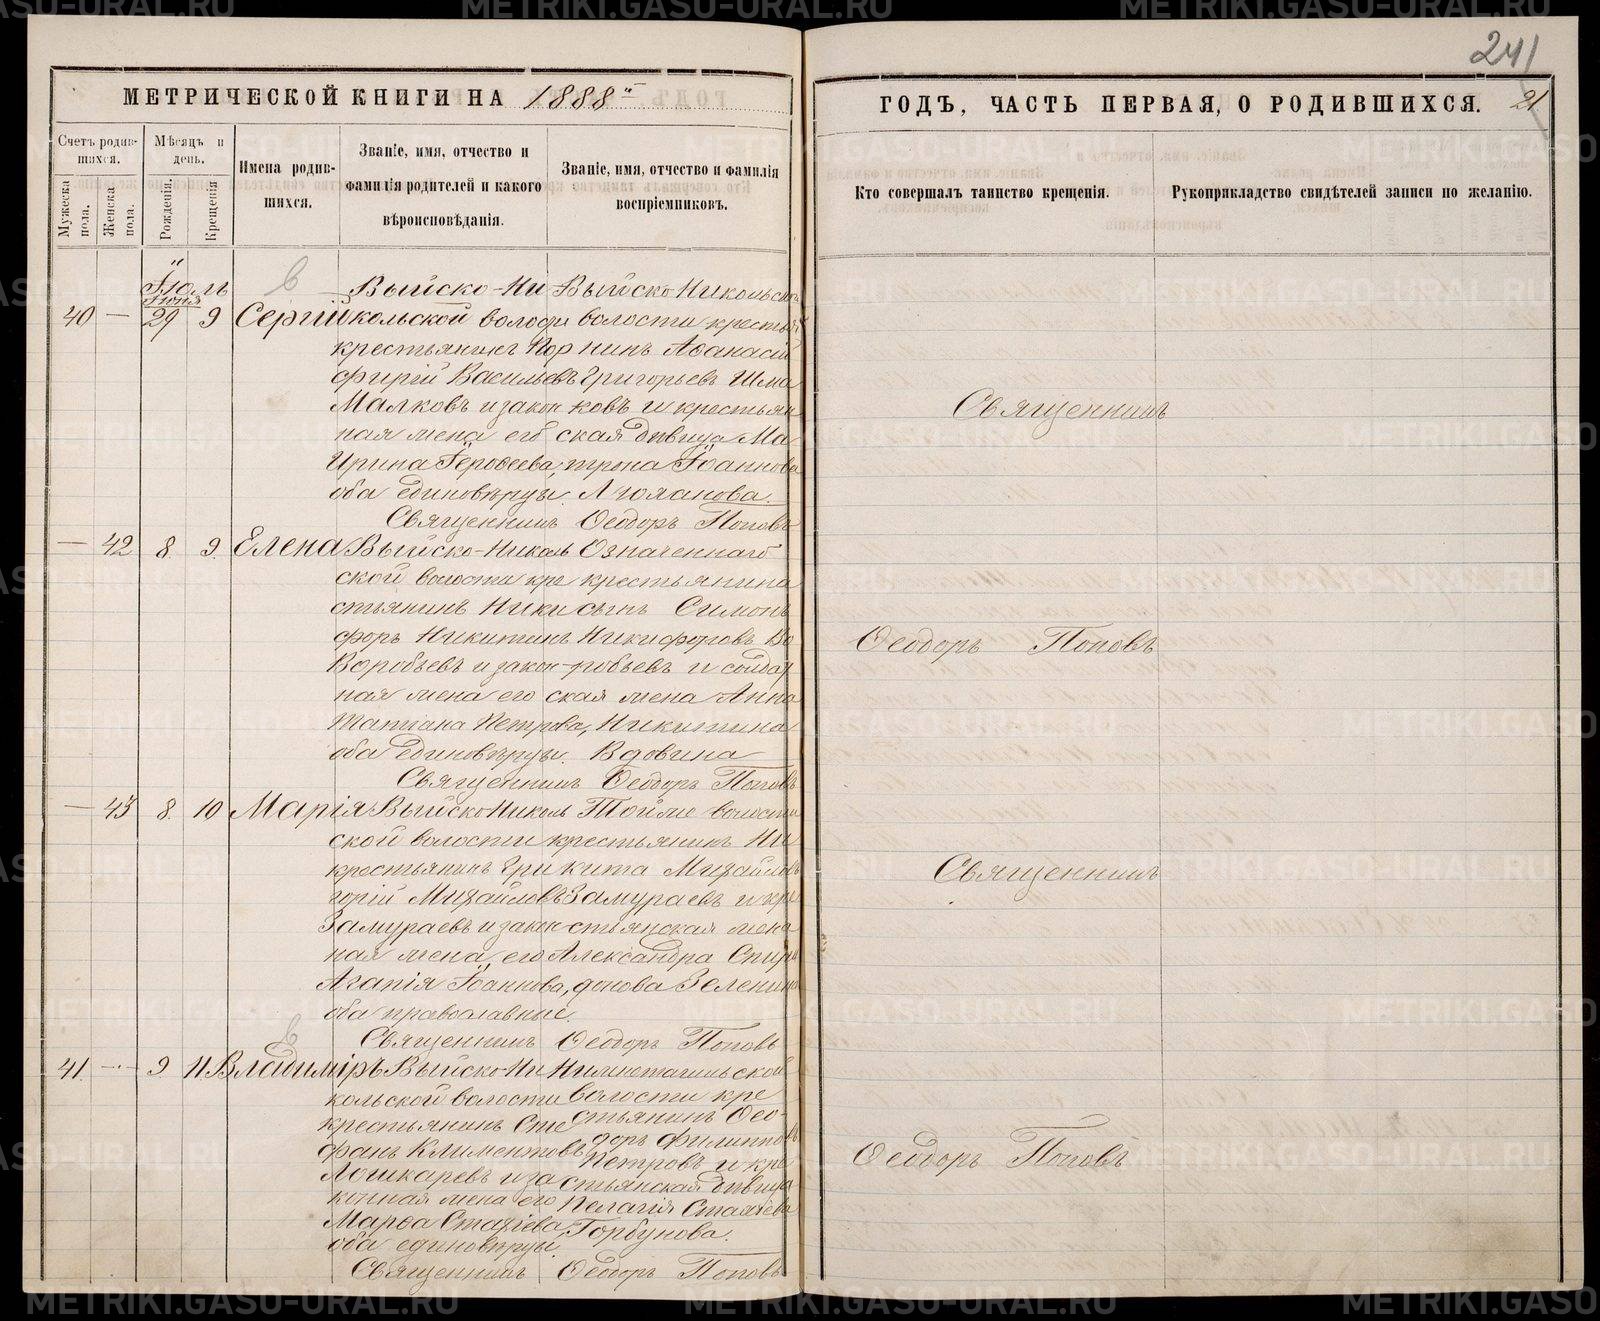 241
МЕТРИЧЕСКОЙ КНИГИ НА 1888й
ГОДЪ, ЧАСТЬ ПЕРВАЯ, О РОДИВШИХСЯ. 21
Счетъ родившихся.
Мужеска пола.
Женска пола.
Мѣсяцъ и день.
Рожденія.
Крещенія
Имена родившихся.
Званіе, имя, отчество и фамилія родителей и какого вѣроисповѣданія.
Званіе, имя, отчество и фамилія воспріемниковъ.
Кто совершалъ таинство крещенія.
Рукоприкладство свидѣтелей записи по желанію.
Іюль
Іюня
40 — 29 9 Сергій
Выйско-Ни
кольской волости
крестьянинъ Пор
фирій Васильевъ
Малковъ и закон
ная жена его
Ирина Іеровеева,
оба единовѣрцы.
Выйско Никольской
волости крестья
нинъ Аѳанасій
Григорьевъ Шма
ковъ и крестьян
ская дѣвица Ма
трона Іоаннова
Священникъ Ѳеодоръ Поповъ
— 42 8. 9. Елена
Выйско-Николь
ской волости кре
стьянинъ Ники
форъ Никитинъ
Воробьевъ и закон
ная жена его
Татіана Петрова,
оба единовѣрцы.
Означеннаго
крестьянина
сынъ Симонъ
Никифоровъ Во
робьевъ и солдат
ская жена Анна
Никитина
Вдовина
Священникъ Ѳеодоръ Поповъ
— 43 8. 10 Марія
Выйско Николь
ской волости
крестьянинъ Гри
горій Михайловъ
Замураевъ и закон
ная жена его
Агапія Іоаннова,
оба православные.
Той же волости
крестьянинъ Ни
кита Михайловъ
Замураевъ и кре
стьянская жена
Александра Спири
донова Зеленина
Священникъ Ѳеодоръ Поповъ
41. — 9. 11. Владиміръ
Выйско-Ни
кольской волости
крестьянинъ Сте
фанъ Климентовъ
Лошкаревъ и за
конная жена его
Марѳа Стахіева,
оба единовѣрцы.
Нижнетагильской
волости кре
стьянинъ Ѳео-
доръ Филипповъ
Петровъ и кре
стьянская дѣвица
Пелагія Стахіева
Горбунова.
Священникъ Ѳеодоръ Поповъ
Священникъ
Ѳеодоръ Поповъ
Священникъ
Ѳеодоръ Поповъ
METRIKI.GASO-URAL.RU